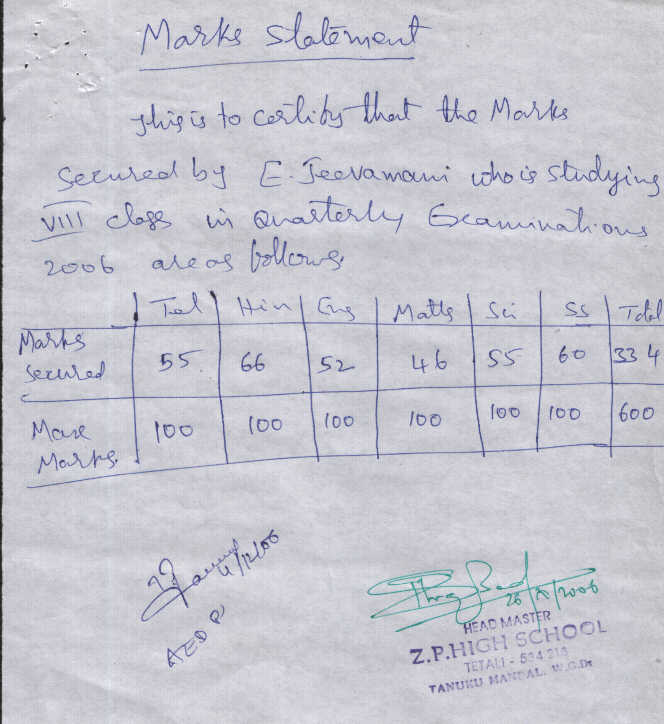 Marks Statement
This is to certify that the Marks
Secured by E. Jeevamani who is studying
VIII class in Quarterly Examinations
2006 are as follows.
Tel Hin Eng Maths Sci SS Total
Marks
Secured 55 66 52 46 55 60 334
Max
Marks. 100 100 100 100 100 100 600
HEAD MASTER
Z.P.HIGH SCHOOL
TETALI - 534 218
TANUKU MANDAL. W.G.Dt